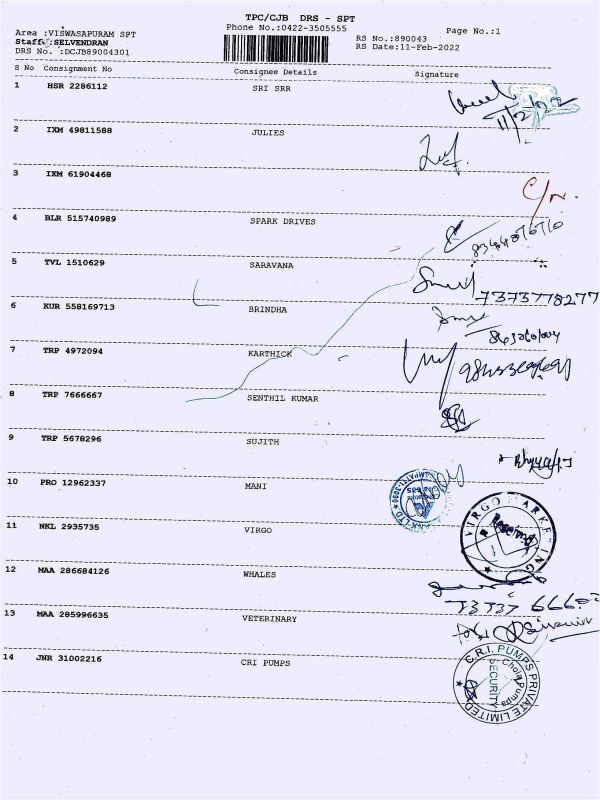 TPC/CJB DRS - SPT
Phone No.:0422-3505555
Page No.:1
Area :VISWASAPURAM SPT
RS No.:890043
Staff :SELVENDRAN
RS Date:11-Feb-2022
DRS No. :DCJB89004301
S No Consignment No Consignee Details Signature
1 HSR 2286112 SRI SRR
2 IXM 49811588 JULIES
3 IXM 61904468
C/N.
4 BLR 515740989 SPARK DRIVES
5 TVL 1510629 SARAVANA
7373778277
6 KUR 558169713 BRINDHA
7 TRP 4972094 KARTHICK
8 TRP 7666667 SENTHIL KUMAR
9 TRP 5678296 SUJITH
10 PRO 12962337 MANI
11 NKL 2935735 VIRGO
VIRGO MARKETING
12 MAA 286684126 WHALES
13 MAA 285996635 VETERINARY
14 JNR 31002216 CRI PUMPS
C.R.I. PUMPS PRIVATE LIMITED
Chola Pumps
SECURITY